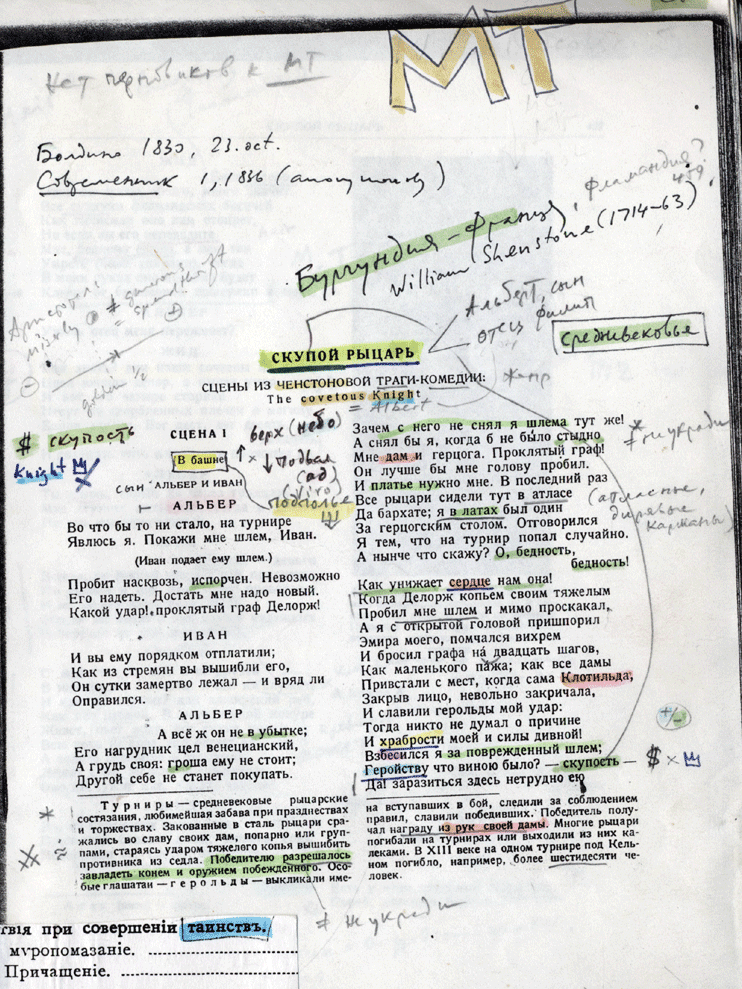 МТ
Нет черновиков к МТ
Болдино 1830, 23. oct.
Современник 1, 1836 (анонимно)
Бургундия - Франция, Фламандия?
William Shenstone (1714-63)
Альберт, сын
отец Филипп
средневековье
Аристотель
golden ½
СКУПОЙ РЫЦАРЬ
СЦЕНЫ ИЗ ЧЕНСТОНОВОЙ ТРАГИ-КОМЕДИИ:
жанр
The covetous Knight
= Albert
$ скупость
Knight
верх (небо)
↓ подвал
(ад)
подполье
СЦЕНА I
В башне
сын АЛЬБЕР И ИВАН
АЛЬБЕР
Во что бы то ни стало, на турнире
Явлюсь я. Покажи мне шлем, Иван.
(Иван подает ему шлем.)
Пробит насквозь, испорчен. Невозможно
Его надеть. Достать мне надо новый.
Какой удар! проклятый граф Делорж!
ИВАН
И вы ему порядком отплатили;
Как из стремян вы вышибли его,
Он сутки замертво лежал — и вряд ли
Оправился.
АЛЬБЕР
А всё ж он не в убытке;
Его нагрудник цел венецианский,
А грудь своя: гроша ему не стоит;
Другой себе не станет покупать.
Зачем с него не снял я шлема тут же!
А снял бы я, когда б не было стыдно
Мне дам и герцога. Проклятый граф!
Он лучше бы мне голову пробил.
И платье нужно мне. В последний раз
Все рыцари сидели тут в атласе
Да бархате; я в латах был один
За герцогским столом. Отговорился
Я тем, что на турнир попал случайно.
А нынче что скажу? О, бедность,
бедность!
Как унижает сердце нам она!
Когда Делорж копьем своим тяжелым
Пробил мне шлем и мимо проскакал,
А я с открытой головой пришпорил
Эмира моего, помчался вихрем
И бросил графа на двадцать шагов,
Как маленького пажа; как все дамы
Привстали с мест, когда сама Клотильда,
Закрыв лицо, невольно закричала,
И славили герольды мой удар:
Тогда никто не думал о причине
И храбрости моей и силы дивной!
Взбесился я за поврежденный шлем;
Геройству что виною было? — скупость —
Да! заразиться здесь нетрудно ею
* не укради
(атласные,
дырявые
карманы)
+/-
$ ×
Турниры — средневековые рыцарские
состязания, любимейшая забава при празднествах
и торжествах. Закованные в сталь рыцари сра-
жались во славу своих дам, попарно или груп-
пами, стараясь ударом тяжелого копья вышибить
противника из седла. Победителю разрешалось
завладеть конем и оружием побежденного. Осо-
бые глашатаи — герольды — выкликали име-
на вступавших в бой, следили за соблюдением
правил, славили победивших. Победитель полу-
чал награду из рук своей дамы. Многие рыцари
погибали на турнирах или выходили из них ка-
леками. В XIII веке на одном турнире под Кель-
ном погибло, например, более шестидесяти че-
ловек.
* не укради
твія при совершеніи таинствъ.
мѵропомазаніе.
Причащеніе.